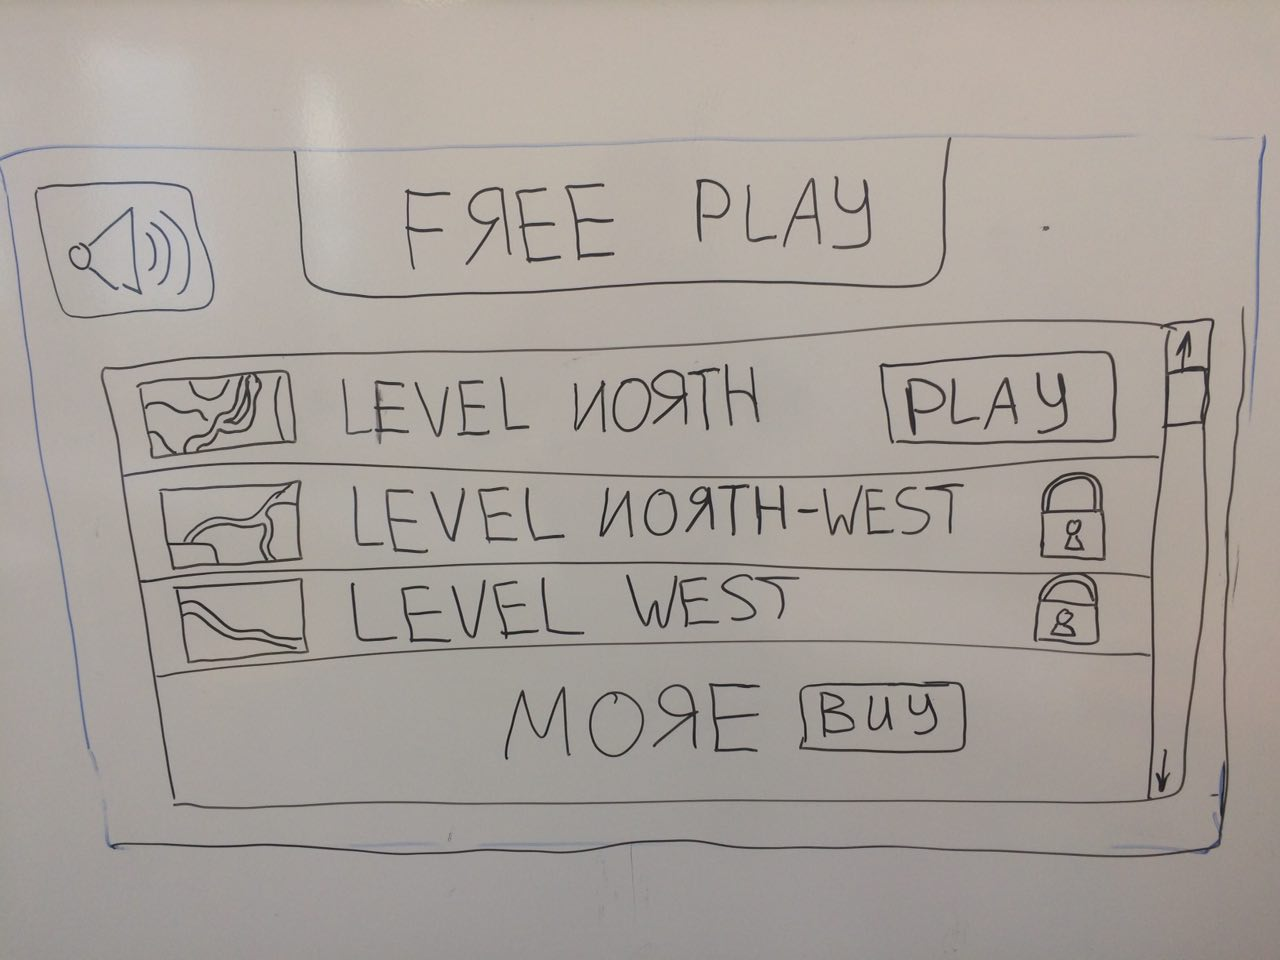 FЯEE PLAY
LEVEL ИOЯTH PLAY
LEVEL ИOЯTH-WEST
LEVEL WEST
MOЯE BUY